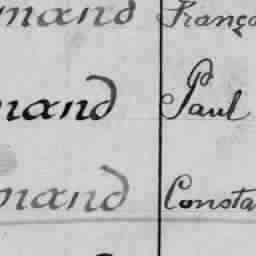 mand Franço
mand Paul
mand Consta